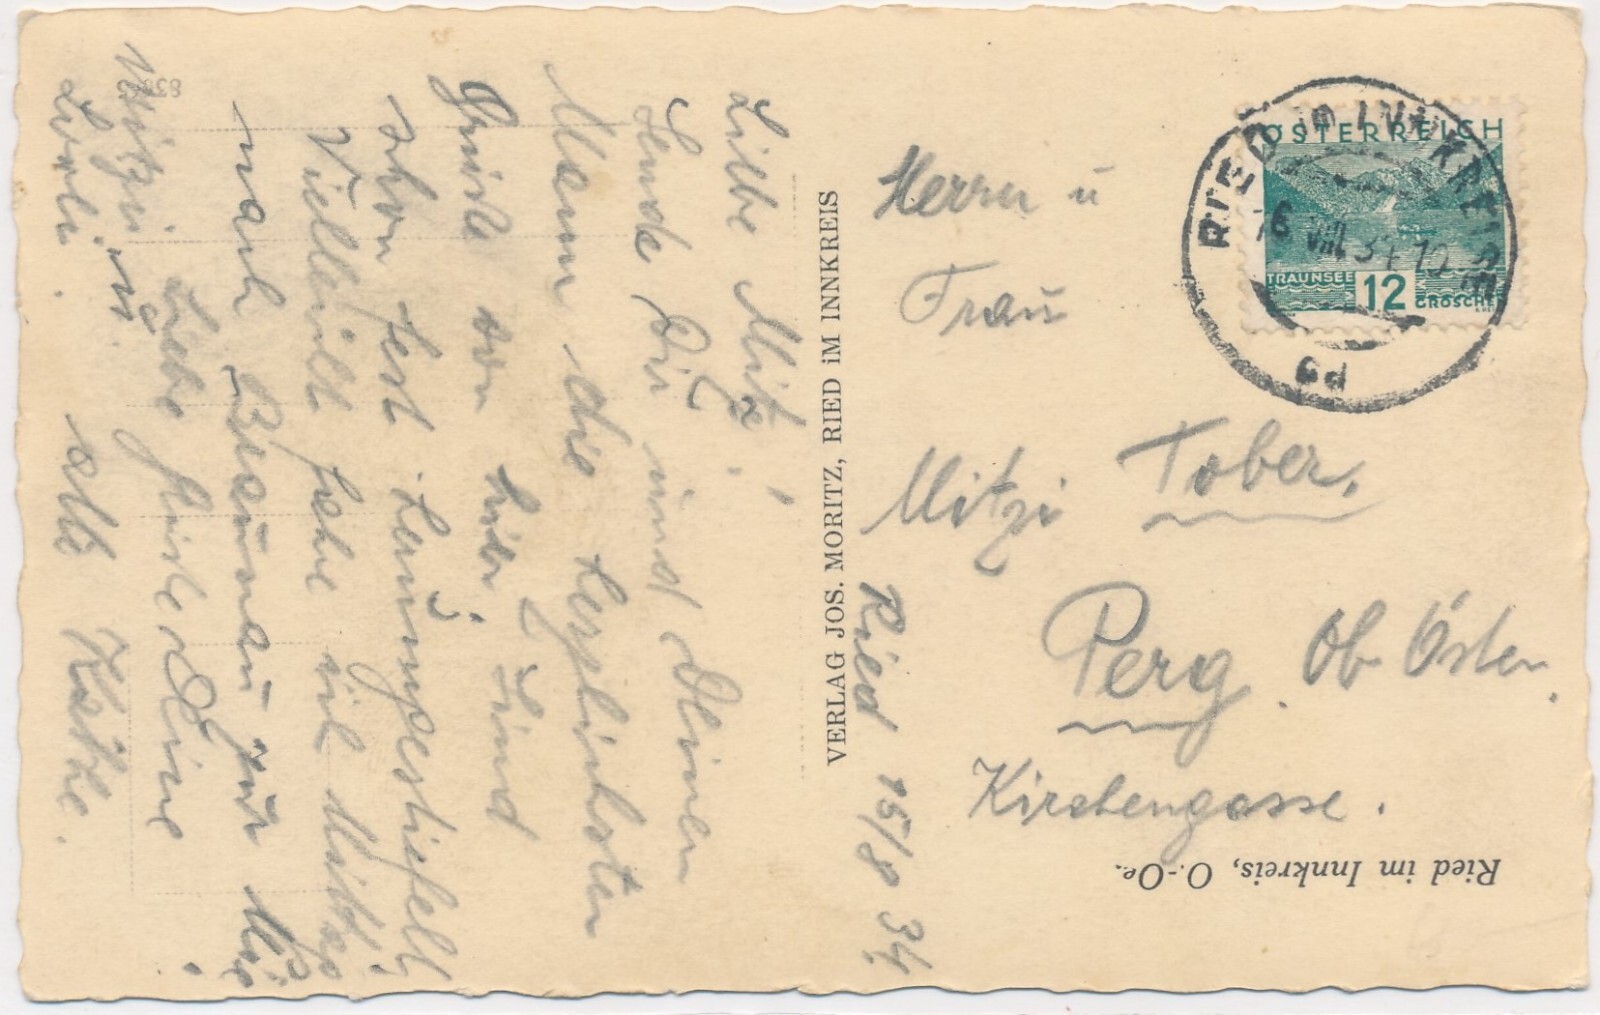 Liebe Mitzi!
Sende Dir und Deinen
Mann die herzlichsten
Grüße von hier. Sind
schon fest
Vielleicht fahre ich
nach Braunau zur
Liebe Grüße Deine
alte Käthe.
VERLAG JOS. MORITZ, RIED iM INNKREIS
Ried 15/8 34
Herrn u
Frau
Mitzi Tober,
Perg Ob. Österr.
Kirchengasse.
Ried im Innkreis, O.-Oe.
ÖSTERREICH
TRAUNSEE
12
GROSCHEN
RIED IM INNKREISE
16 VIII 34 12
6d